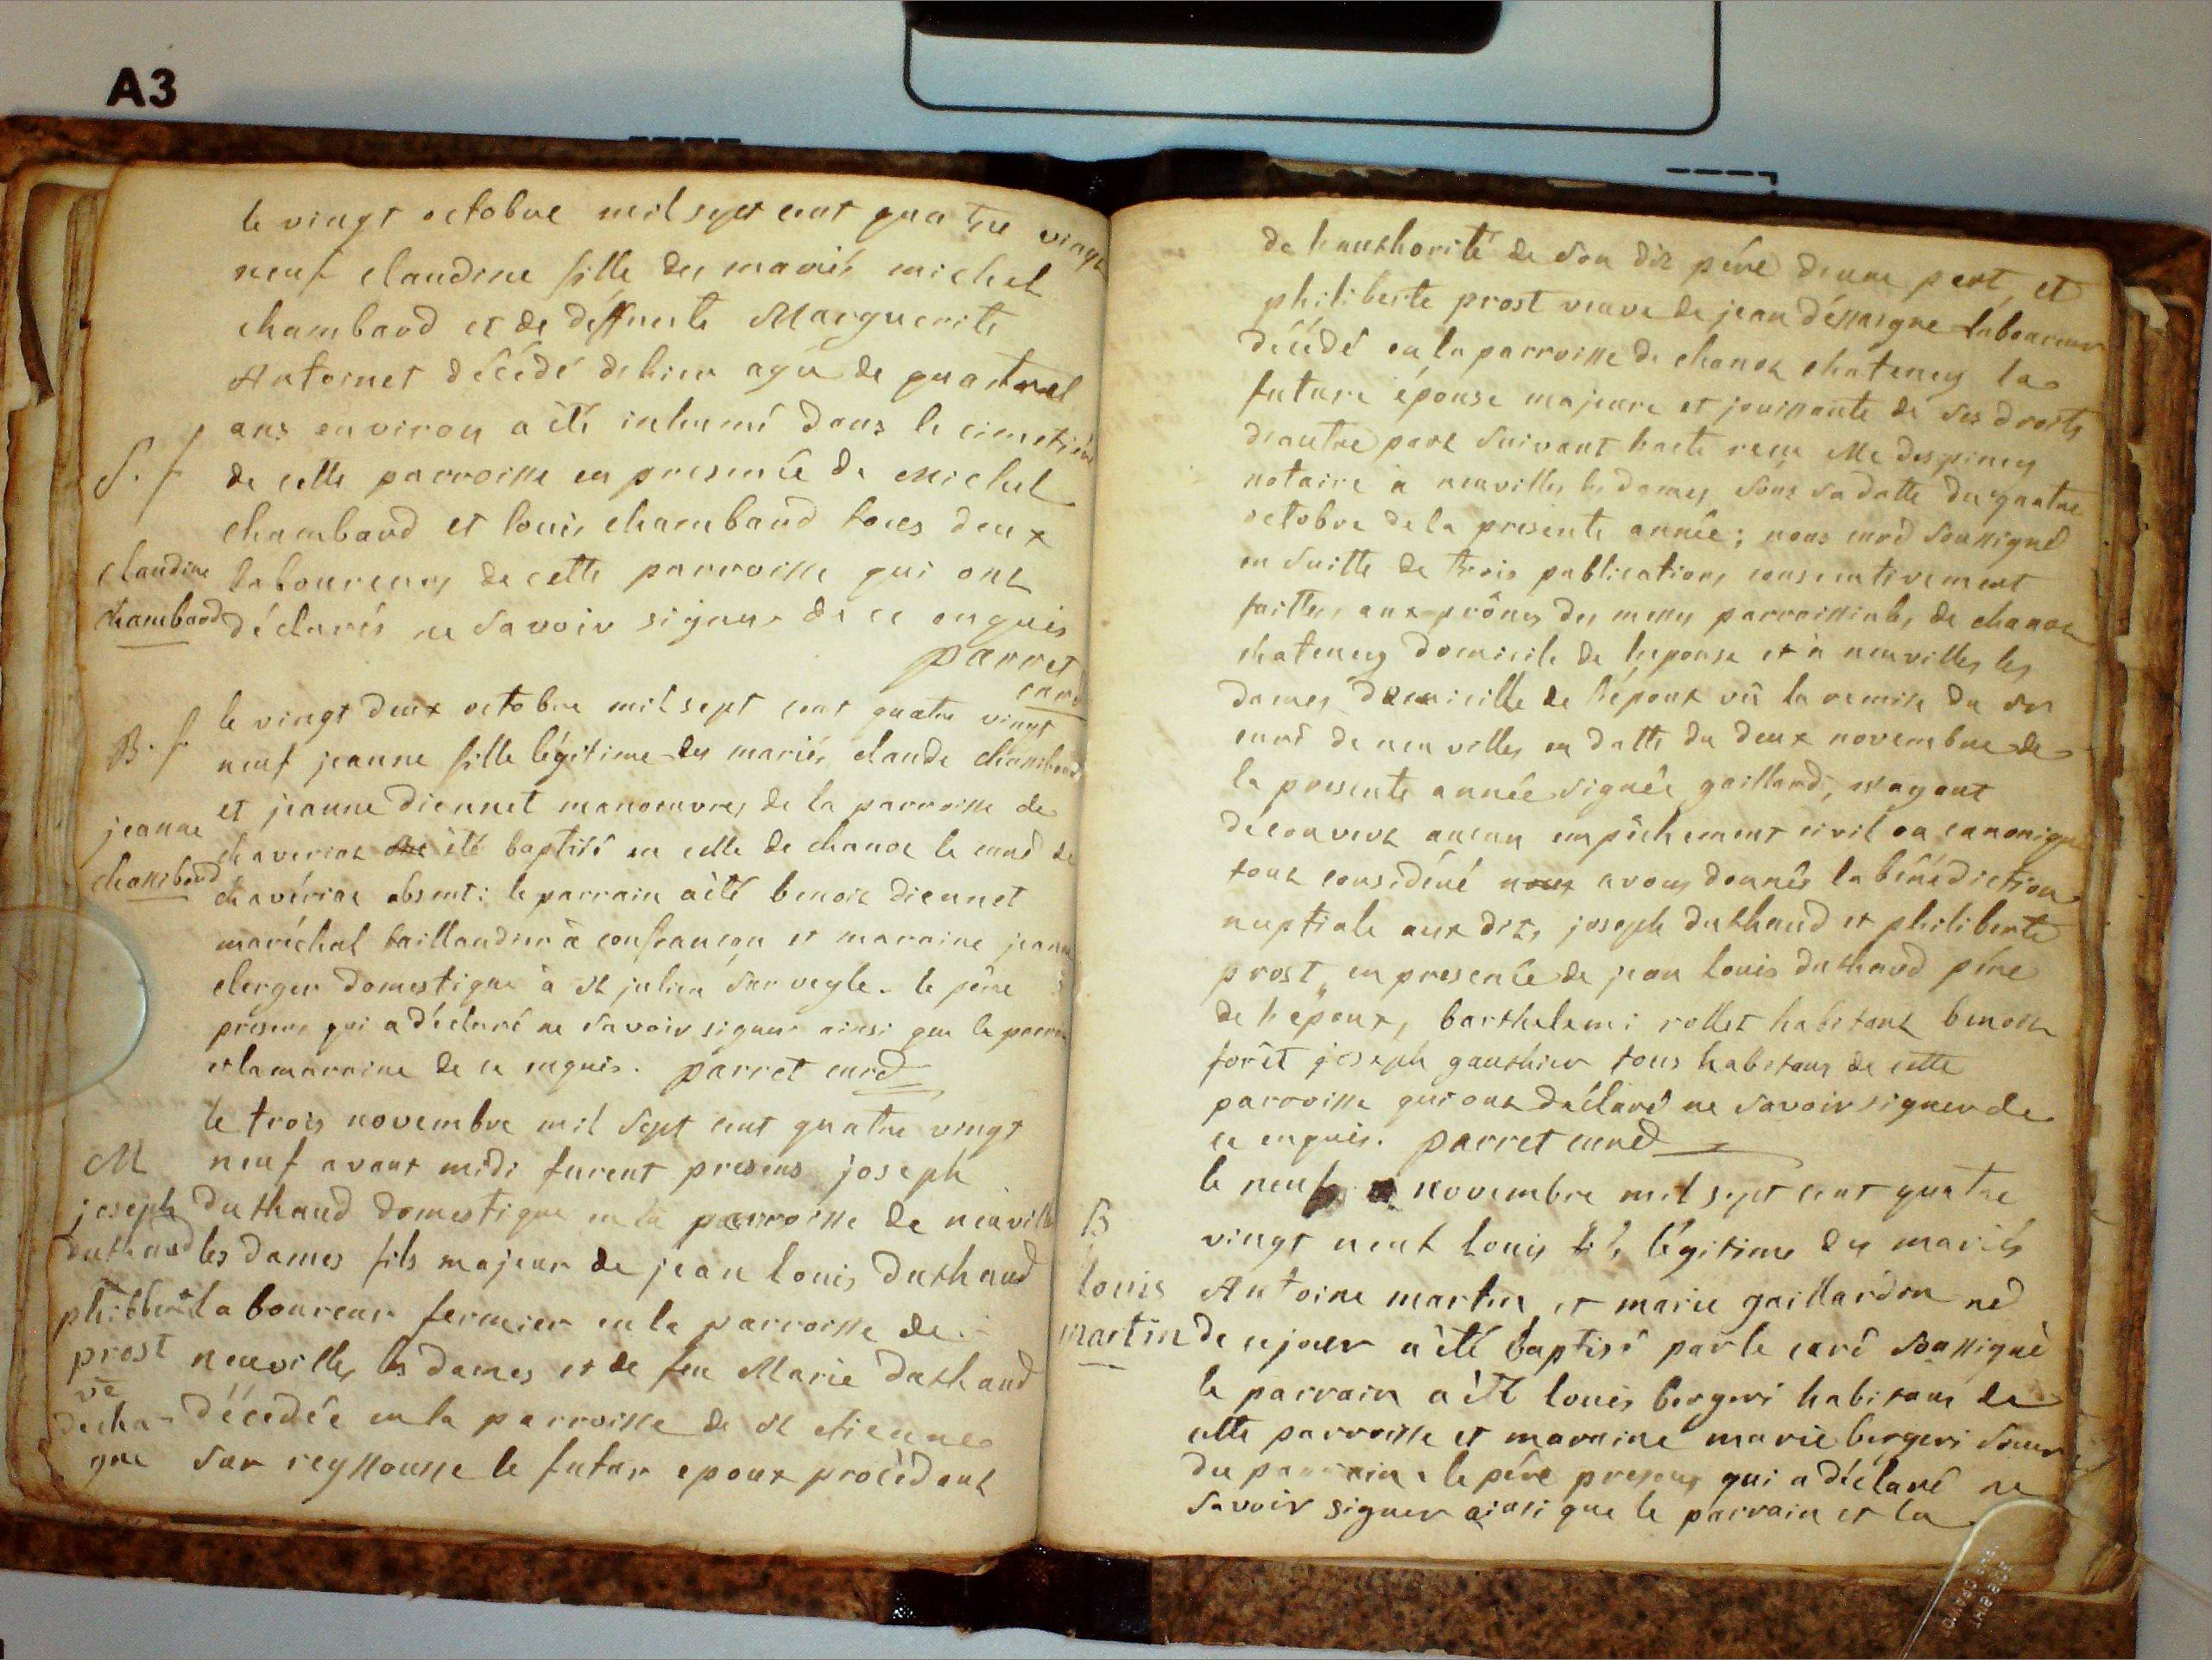 A3
le vingt octobre mil sept cent quatre vingt
neuf claudine fille des mariés michel
chambaud et de deffuncte Marguerite
Antoinet décédé dehier agée de quatre
ans environ a été inhumé dans le cimetière
S. f de cette parroisse en presence de michel
chambaud et louis chambaud tous deux
claudine laboureurs de cette parroisse qui ont
chambaud déclarés ne savoir signer de ce enquis
parret
curé
le vingt deux octobre mil sept cent quatre vingt
B. f neuf jeanne fille légitime des mariés claude
et jeanne diennet manoeuvres de la parroisse de
jeanne chaveriat été baptisé en celle de chanoz le curé de
chavériat absent: le parrain a été benoit diennet
maréchal taillandier à confrançon et maraine jeanne
clerger domestique à st julien sur veyle. le père
present qui a déclaré ne savoir signer ainsi que le parrain
et la maraine de ce enquis. parret curé
le trois novembre mil sept cent quatre vingt
M neuf avant midi furent presens joseph
joseph duthaud domestique en la parroisse de neuville
duthaud les dames fils majeur de jean louis duthaud
philibert laboureur fermier en la parroisse de
prost neuville les dames et de feu Marie duthaud
ve
décédée en la parroisse de st etienne
gne sur reyssousse le futur epoux procédant
de l'authorité de son dit père d'une part et
philiberte prost veuve de jean laboureur
décédé en la parroisse de chanoz chatenay la
future épouse majeure et jouissante de ses droits
d'autre part suivant l'acte reçu Me despiney
notaire à neuville les dames sous sa datte du quatre
octobre de la presente année; nous curé soussigné
en suitte de trois publications consecutivement
faittes aux prônes des messes parroissiales de chanoz
chatenay domicile de l'epouse et à neuville les
dames domicille de l'époux vû la remise du sr
curé de neuville en datte du deux novembre de
la presente année signée gaillard; n'ayant
découvert aucun empêchement civil ou canonique
tout considéré nous avons donnés la bénédiction
nuptiale aux dits joseph duthaud et philiberte
prost en presence de jean louis duthaud père
de l'epoux, barthelemi rollet habitant benoit
forêt joseph gauthier tous habitans de cette
parroisse qui ont déclaré ne savoir signer de
ce enquis. parret curé
le neuf novembre mil sept cent quatre
B vingt neuf louis fils légitime des mariés
louis Antoine martin et marie gaillardon né
martin de ce jour a été baptisé par le curé soussigné
le parrain a été louis bergeri habitant de
cette parroisse et maraine marie bergeri soeur
du parrain. le père present qui a déclaré ne
savoir signer ainsi que le parrain et la